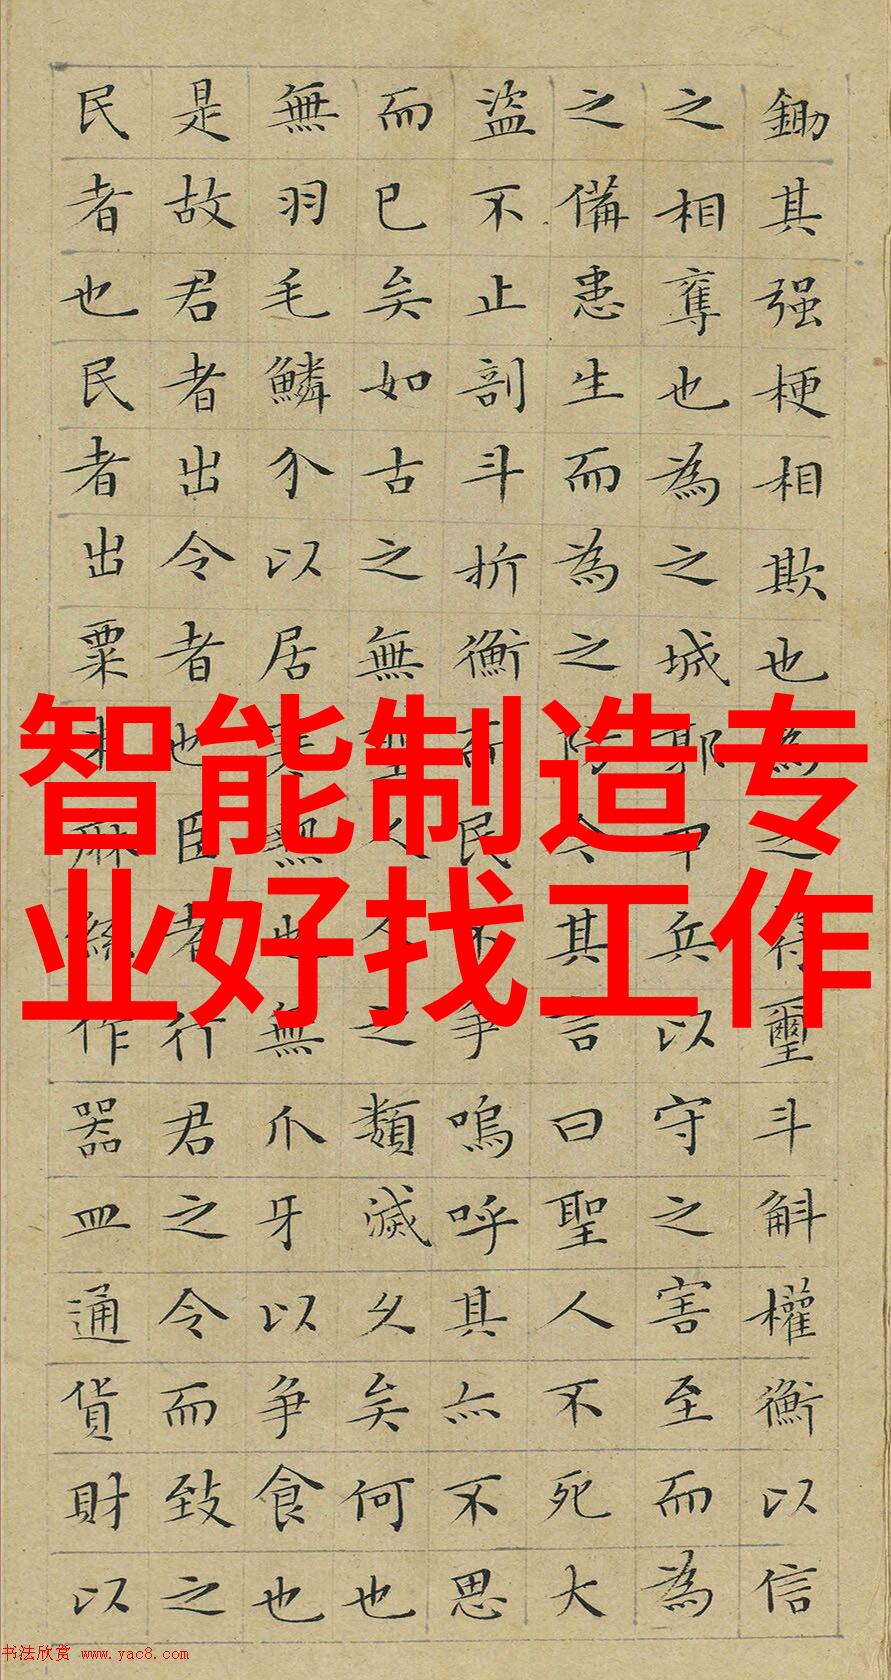 鋤其强梗相欺也為之符璽斗斛權衡以信
之相奪也為之城郭甲兵以守之害至而為
之備患生而為之防今其言曰聖人不死大
盜不止剖斗折衡而民不争嗚呼其亦不思
而已矣如古之無聖人人之類滅久矣何也
無羽毛鱗介以居寒熱也無爪牙以争食也
是故君者出令者也臣者行君之令而致之
民者也民者出粟米麻絲作器皿通貨財以
智能制造专
业好找工作
书法欣赏 www.yac8.com